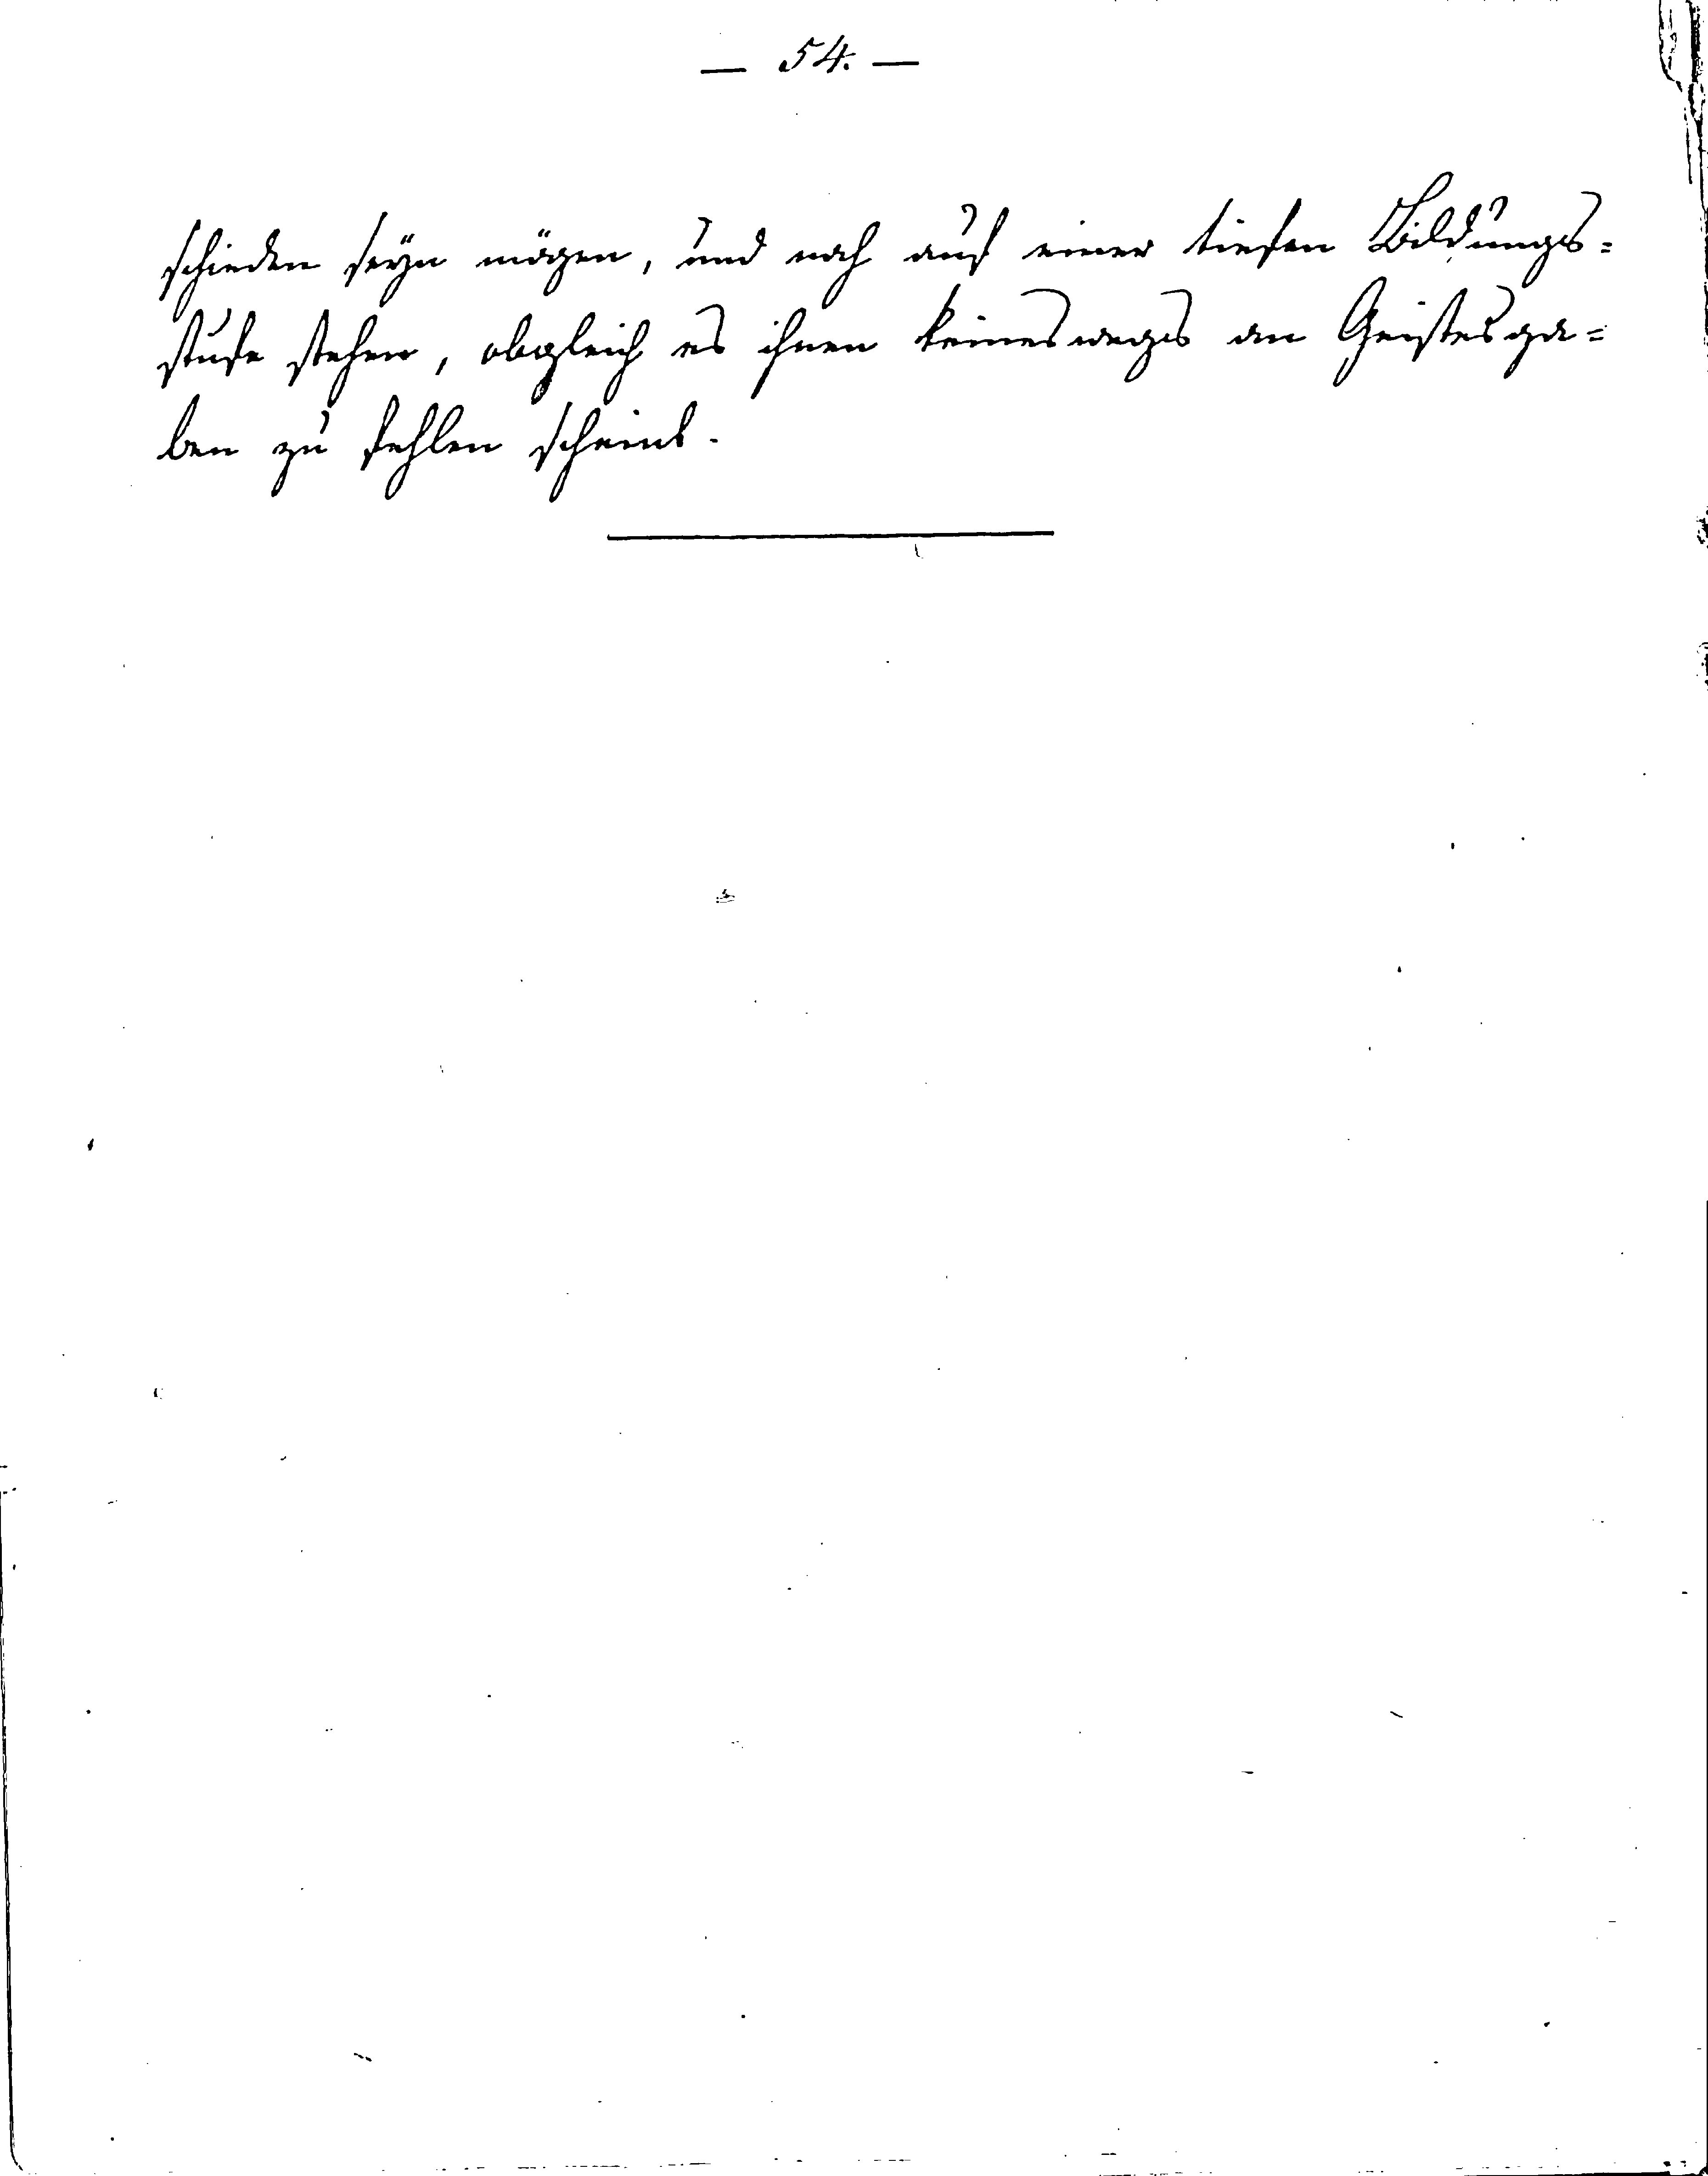 — 54. —
schieden seyn mögen, und noch auf einer tiefen Bildungs=
stufe stehen, obgleich es ihnen keinesweges an Geistesga=
ben zu fehlen scheint.